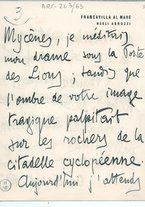 3
ARC-21.3/63
FRANCAVILLA AL MARE
NEGLI ABRUZZI
Mycènes, je méditais
mon drame sous la Porte
des Lions ; tandis que
l'ombre de votre image
tragique palpitait
sur les rochers de la
citadelle cyclopéenne.
Aujourd'hui j'attends